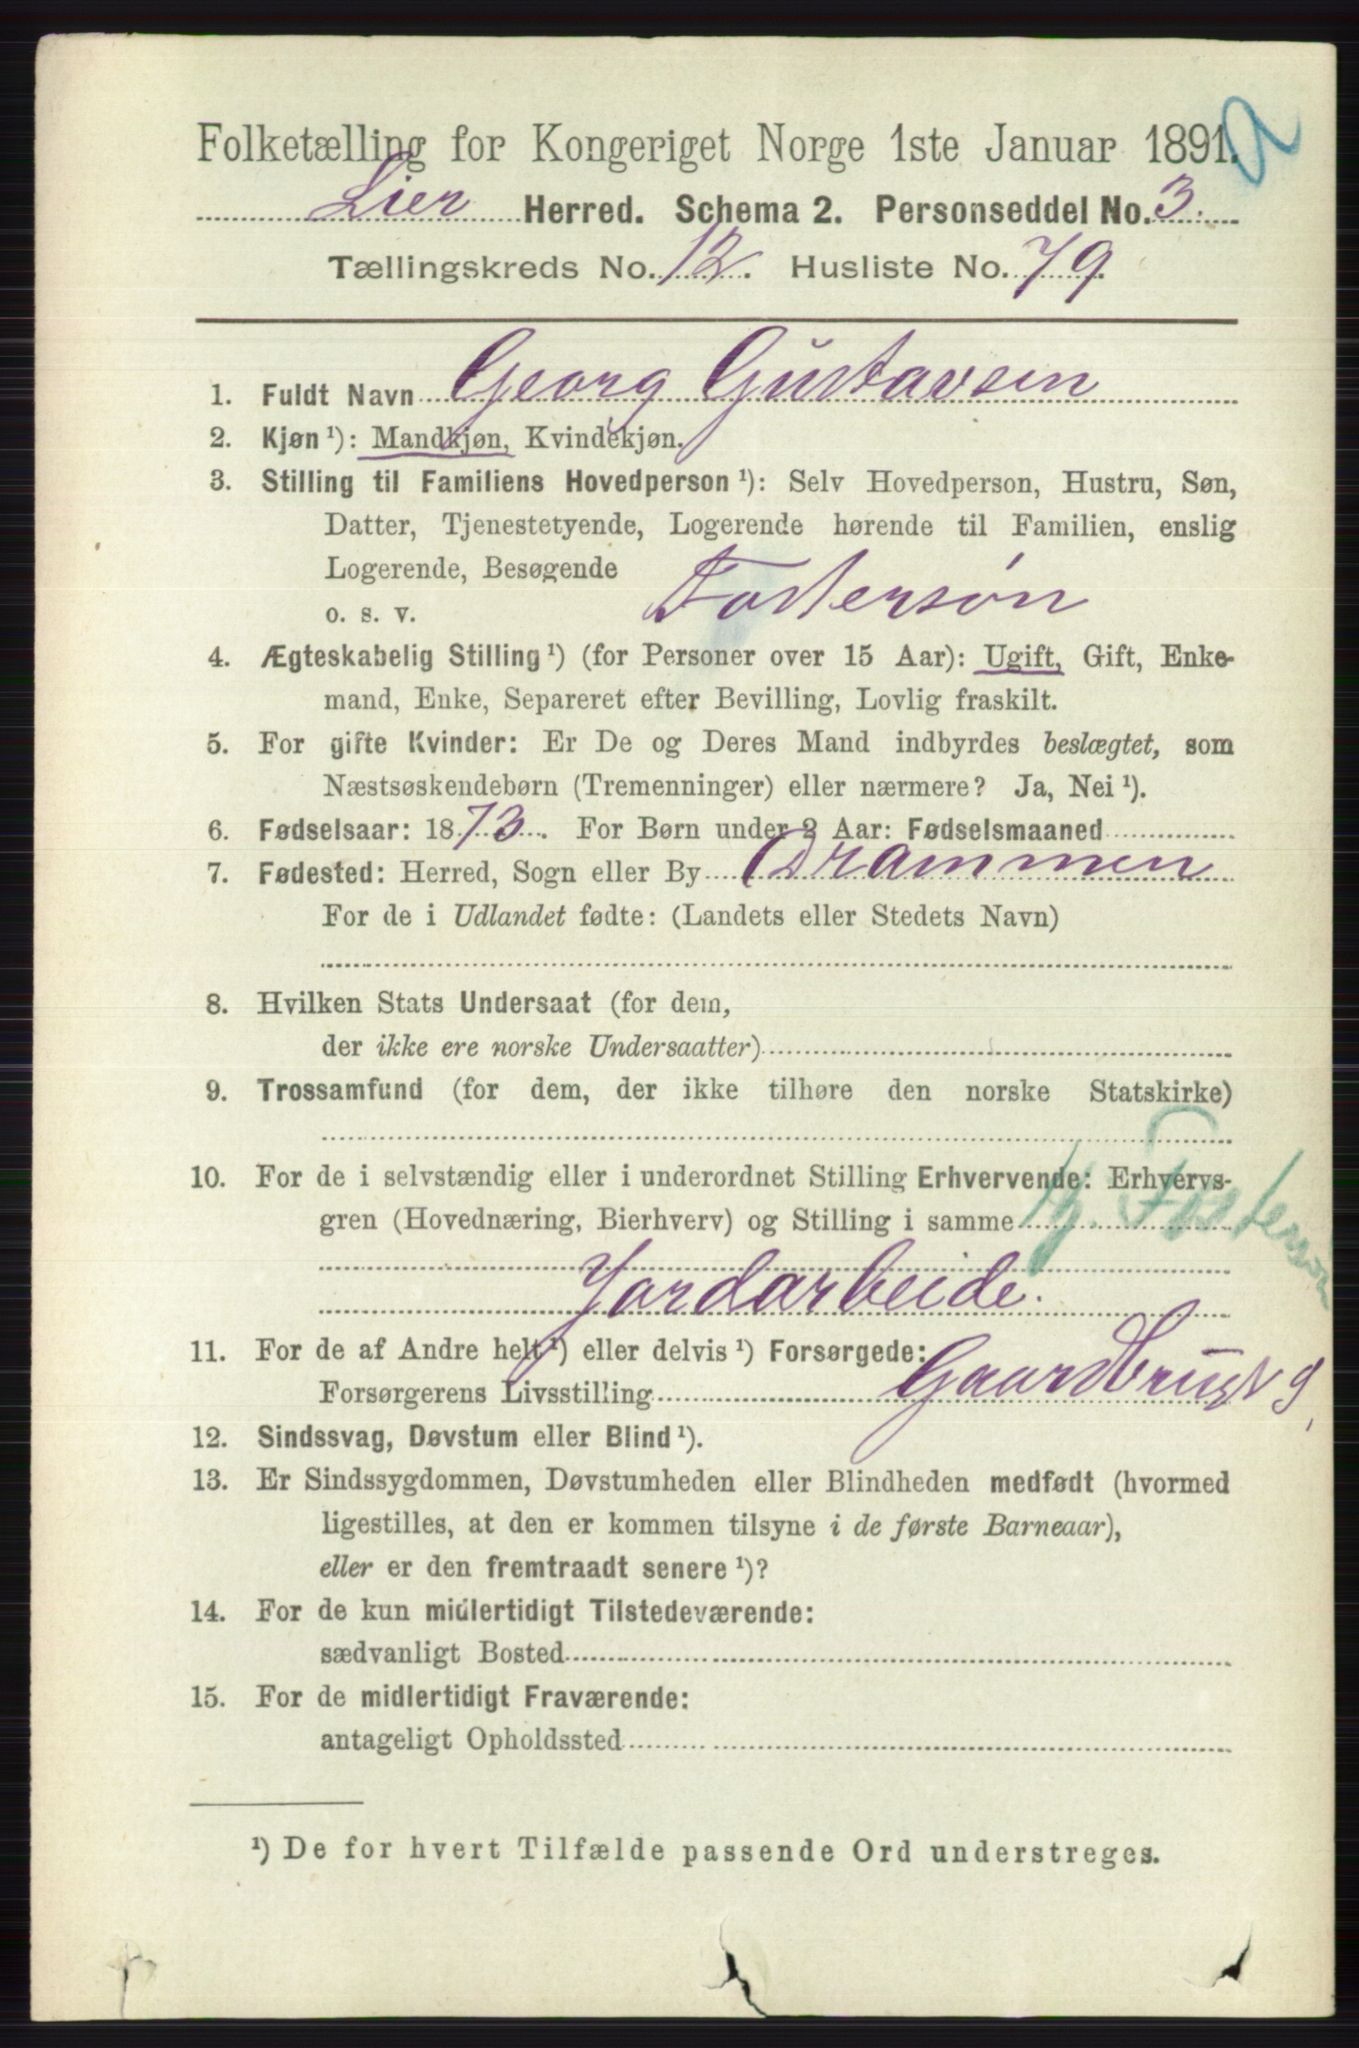 Folketælling for Kongeriget Norge 1ste Januar 1891.
Lier Herred. Schema 2. Personseddel No. 3.
Tællingskreds No. 12. Husliste No. 79.
1. Fuldt Navn Georg Gustavsen
2. Kjøn ¹): Mandkjøn, Kvindekjøn.
3. Stilling til Familiens Hovedperson ¹): Selv Hovedperson, Hustru, Søn,
Datter, Tjenestetyende, Logerende hørende til Familien, enslig
Logerende, Besøgende
o. s. v. Fostersøn
4. Ægteskabelig Stilling ¹) (for Personer over 15 Aar): Ugift, Gift, Enke-
mand, Enke, Separeret efter Bevilling, Lovlig fraskilt.
5. For gifte Kvinder: Er De og Deres Mand indbyrdes beslægtet, som
Næstsøskendebørn (Tremenninger) eller nærmere? Ja, Nei ¹).
6. Fødselsaar: 1873. For Børn under 2 Aar: Fødselsmaaned
7. Fødested: Herred, Sogn eller By Drammen
For de i Udlandet fødte: (Landets eller Stedets Navn)
8. Hvilken Stats Undersaat (for dem,
der ikke ere norske Undersaatter)
9. Trossamfund (for dem, der ikke tilhøre den norske Statskirke)
10. For de i selvstændig eller i underordnet Stilling Erhvervende: Erhvervs-
gren (Hovednæring, Bierhverv) og Stilling i samme Fostersøn
Jordarbeide.
11. For de af Andre helt ¹) eller delvis ¹) Forsørgede:
Forsørgerens Livsstilling Gaardbrug
12. Sindssvag, Døvstum eller Blind ¹).
13. Er Sindssygdommen, Døvstumheden eller Blindheden medfødt (hvormed
ligestilles, at den er kommen tilsyne i de første Barneaar),
eller er den fremtraadt senere ¹)?
14. For de kun midlertidigt Tilstedeværende:
sædvanligt Bosted
15. For de midlertidigt Fraværende:
antageligt Opholdssted
¹) De for hvert Tilfælde passende Ord understreges.